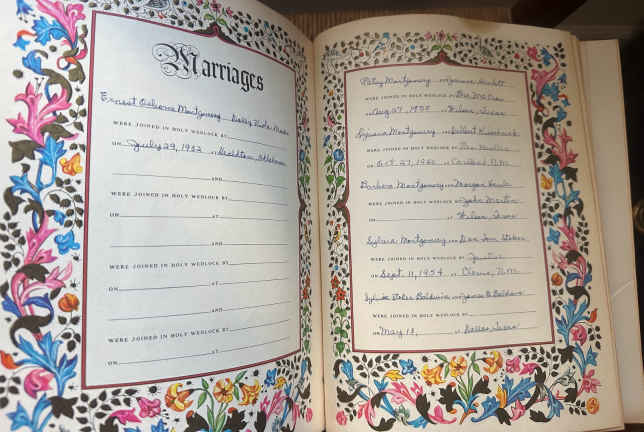 Marriages
Ernest Osborne Montgomery and
WERE JOINED IN HOLY WEDLOCK BY
ON July 29, 1933 AT Oklahoma
AND
WERE JOINED IN HOLY WEDLOCK BY
ON AT
AND
WERE JOINED IN HOLY WEDLOCK BY
ON AT
AND
WERE JOINED IN HOLY WEDLOCK BY
ON AT
Patsy Montgomery AND
WERE JOINED IN HOLY WEDLOCK BY
ON Aug 27, 1950 AT Texas
Montgomery AND
WERE JOINED IN HOLY WEDLOCK BY
ON Oct. 27, AT Carlsbad, N.M.
Barbara Montgomery AND Morgan
WERE JOINED IN HOLY WEDLOCK BY John Martin
ON AT Texas
Sylvia Montgomery AND Stokes
WERE JOINED IN HOLY WEDLOCK BY Justice
ON Sept. 11, 1954 AT Clovis, N.M.
Sylvia Stokes Baldwin AND James Baldwin
WERE JOINED IN HOLY WEDLOCK BY
ON May 13, AT Dallas, Texas